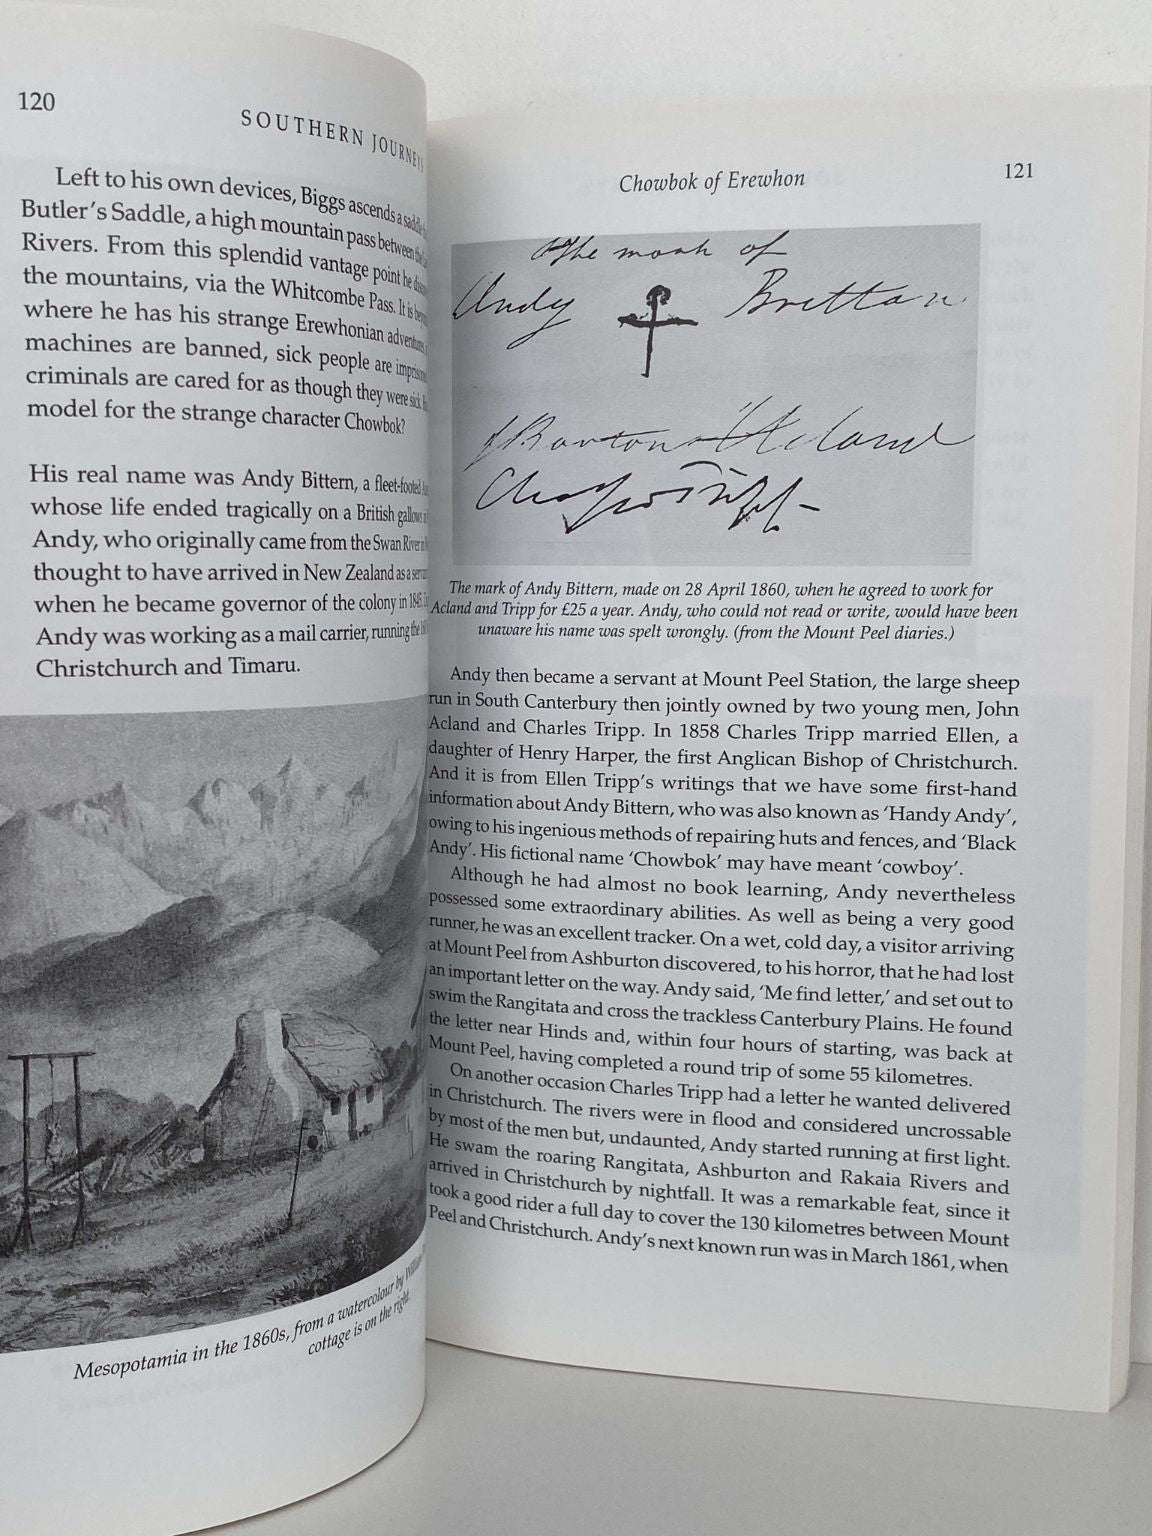 120
SOUTHERN JOURNEYS
Left to his own devices, Biggs ascends a saddle
Butler's Saddle, a high mountain pass between the
Rivers. From this splendid vantage point he
the mountains, via the Whitcombe Pass. It is
where he has his strange Erewhonian adventures,
machines are banned, sick people are
criminals are cared for as though they were sick.
model for the strange character Chowbok?
His real name was Andy Bittern, a fleet-footed
whose life ended tragically on a British gallows
Andy, who originally came from the Swan River in
thought to have arrived in New Zealand as a
when he became governor of the colony in 1845.
Andy was working as a mail carrier, running the
Christchurch and Timaru.
Mesopotamia in the 1860s, from a watercolour by
cottage is on the right.
Chowbok of Erewhon
121
The mark of
Andy Brettan
J Barton Acland
Charles Tripp
The mark of Andy Bittern, made on 28 April 1860, when he agreed to work for
Acland and Tripp for £25 a year. Andy, who could not read or write, would have been
unaware his name was spelt wrongly. (from the Mount Peel diaries.)
Andy then became a servant at Mount Peel Station, the large sheep
run in South Canterbury then jointly owned by two young men, John
Acland and Charles Tripp. In 1858 Charles Tripp married Ellen, a
daughter of Henry Harper, the first Anglican Bishop of Christchurch.
And it is from Ellen Tripp's writings that we have some first-hand
information about Andy Bittern, who was also known as 'Handy Andy',
owing to his ingenious methods of repairing huts and fences, and 'Black
Andy'. His fictional name 'Chowbok' may have meant 'cowboy'.
Although he had almost no book learning, Andy nevertheless
possessed some extraordinary abilities. As well as being a very good
runner, he was an excellent tracker. On a wet, cold day, a visitor arriving
at Mount Peel from Ashburton discovered, to his horror, that he had lost
an important letter on the way. Andy said, 'Me find letter,' and set out to
swim the Rangitata and cross the trackless Canterbury Plains. He found
the letter near Hinds and, within four hours of starting, was back at
Mount Peel, having completed a round trip of some 55 kilometres.
On another occasion Charles Tripp had a letter he wanted delivered
in Christchurch. The rivers were in flood and considered uncrossable
by most of the men but, undaunted, Andy started running at first light.
He swam the roaring Rangitata, Ashburton and Rakaia Rivers and
arrived in Christchurch by nightfall. It was a remarkable feat, since it
took a good rider a full day to cover the 130 kilometres between Mount
Peel and Christchurch. Andy's next known run was in March 1861, when